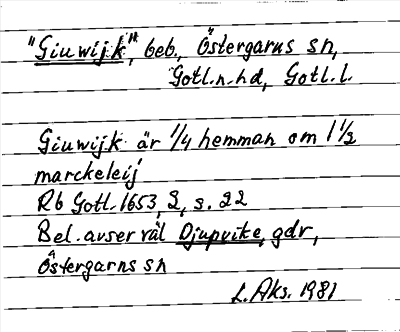 "Giuwijk", beb., Östergarns sn,
Gotl.n.hd, Gotl.l.
Giuwijk är 1/4 hemman om 1 1/2
marckeleij
Rb Gotl. 1653, 2, s. 22
Bel. avser väl Djupvike, gdr,
Östergarns sn
L. Aks. 1981